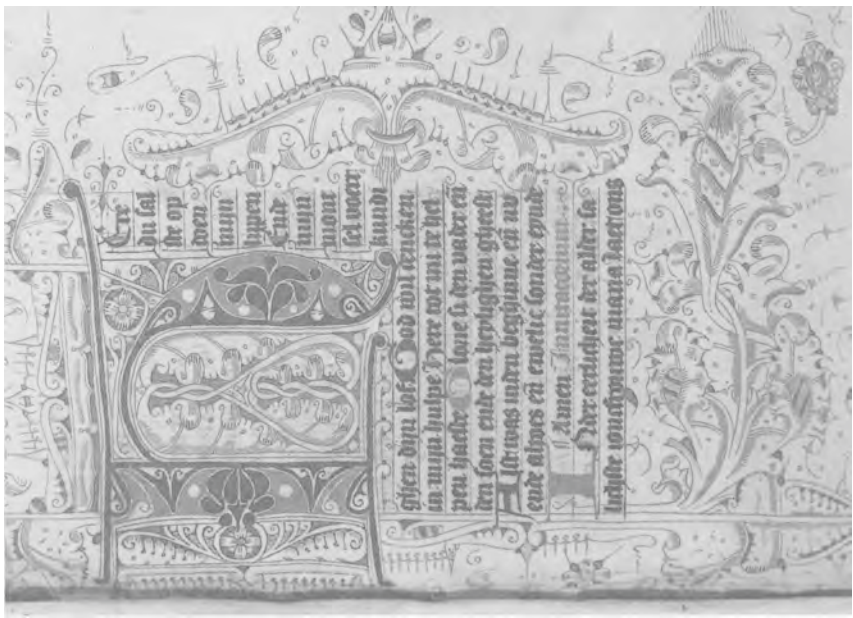 Ere
du sal
ste op
doen
mijn
lippen
Ende
mijn
mont
sel voer
kundi
ghen dijn lof. God wil dencken
in mijn hulpe Here tot mi te hel
pen haeste si den vader en̄
den soen ende den heylighen gheest
Alst was inden beghinne en̄ nv
ende altoes en̄ ewelic sonder eynde
Amen
In der eerlicheit der alder sa
lichste ioncfrouwe maria laet ons